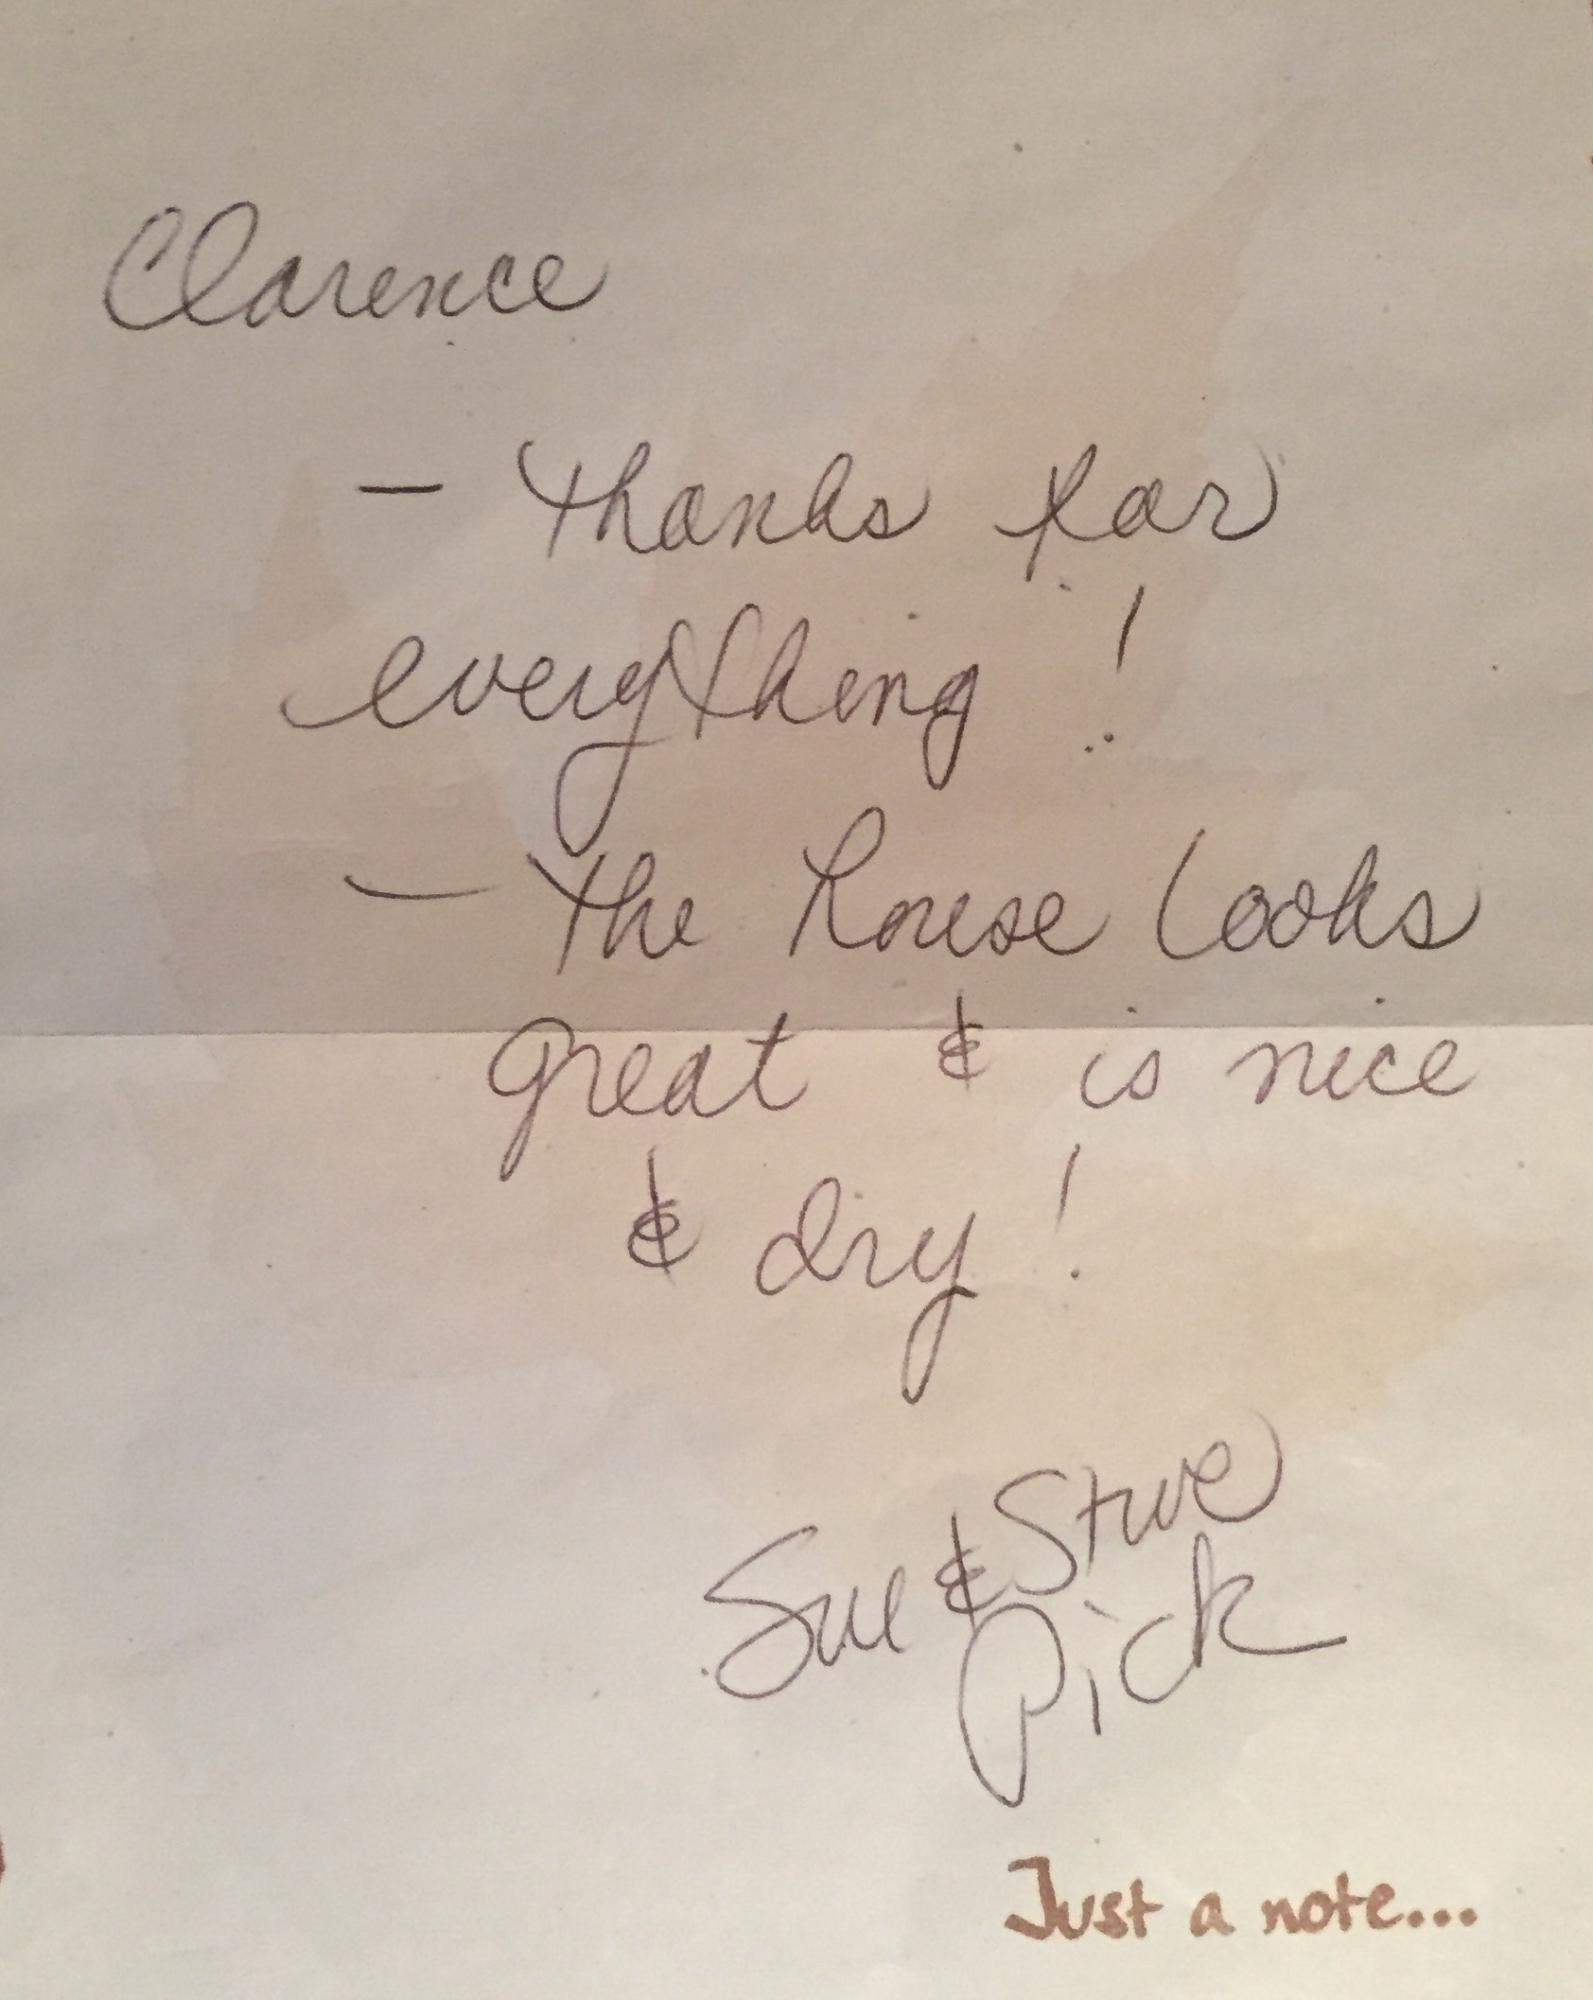 Clarence
- Thanks for
everything!
- The house looks
great & is nice
& dry!
Sue & Steve
Pick
Just a note...